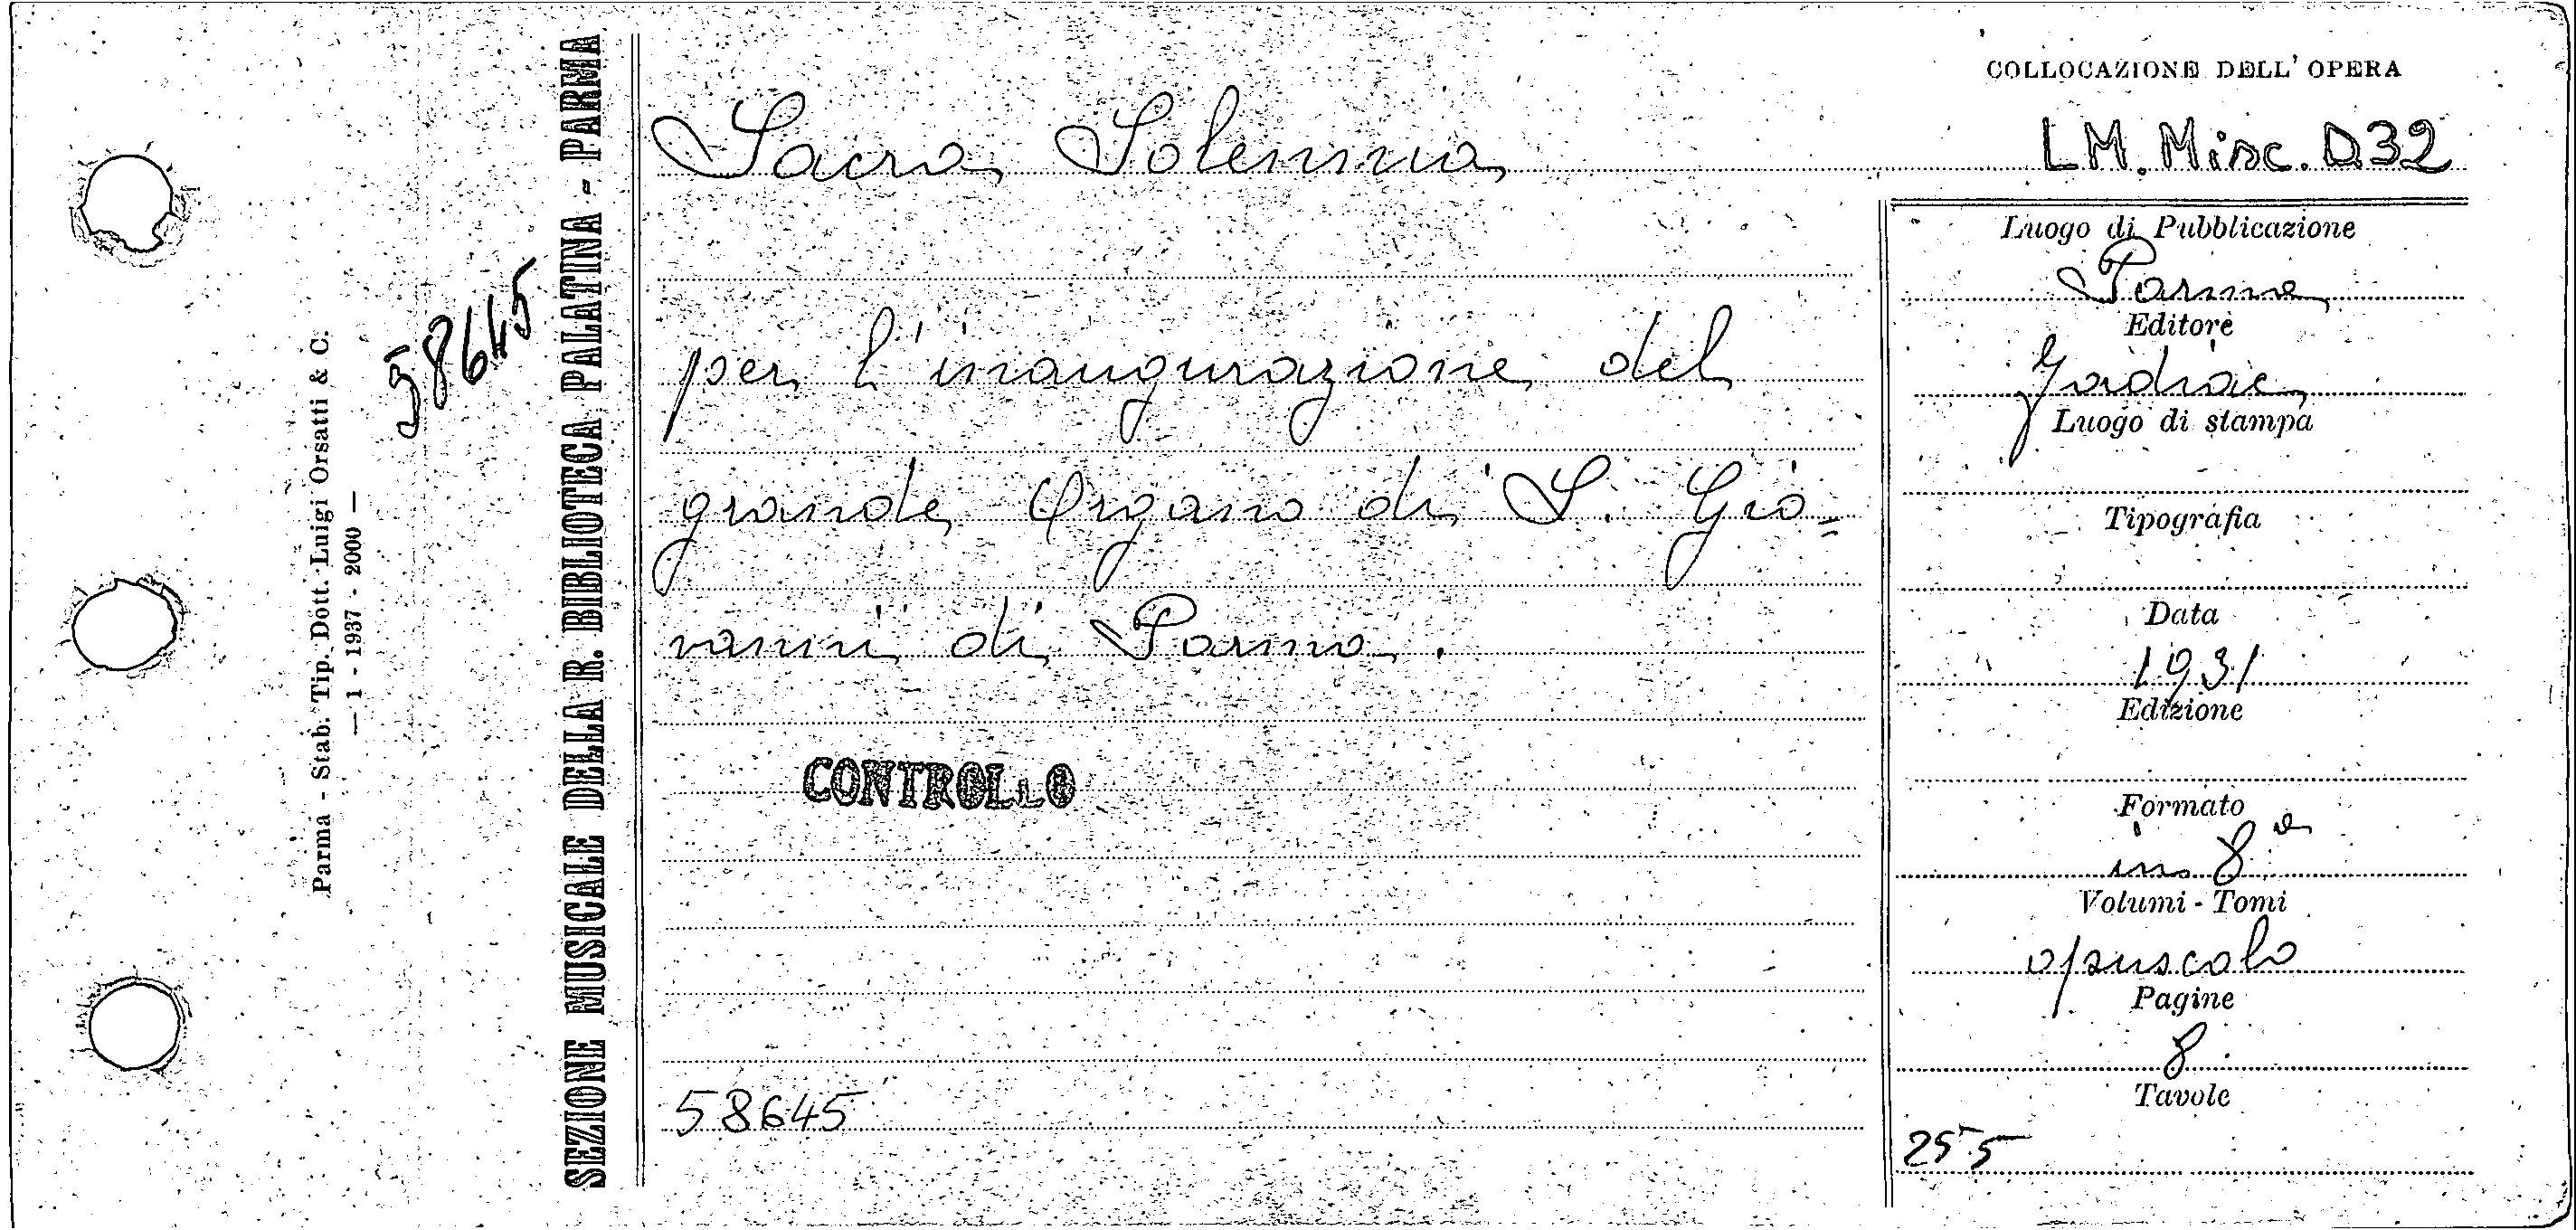 COLLOCAZIONE DELL'OPERA
LM. Misc. D32
Sacra Solenne
per l'inaugurazione del
grande Organo di S. Gio=
vanni di Parma.
CONTROLLO
58645
Luogo di Pubblicazione
Parma
Editore
Luogo di stampa
Tipografia
Data
1931
Edizione
Formato
in 8°
Volumi - Tomi
opuscolo
Pagine
8
Tavole
255
SEZIONE MUSICALE DELLA R. BIBLIOTECA PALATINA - PARMA
58645
Parma - Stab. Tip. Dott. Luigi Orsatti & C.
— 1 - 1937 - 2000 —